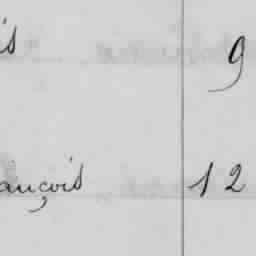 is 9
ançois 12